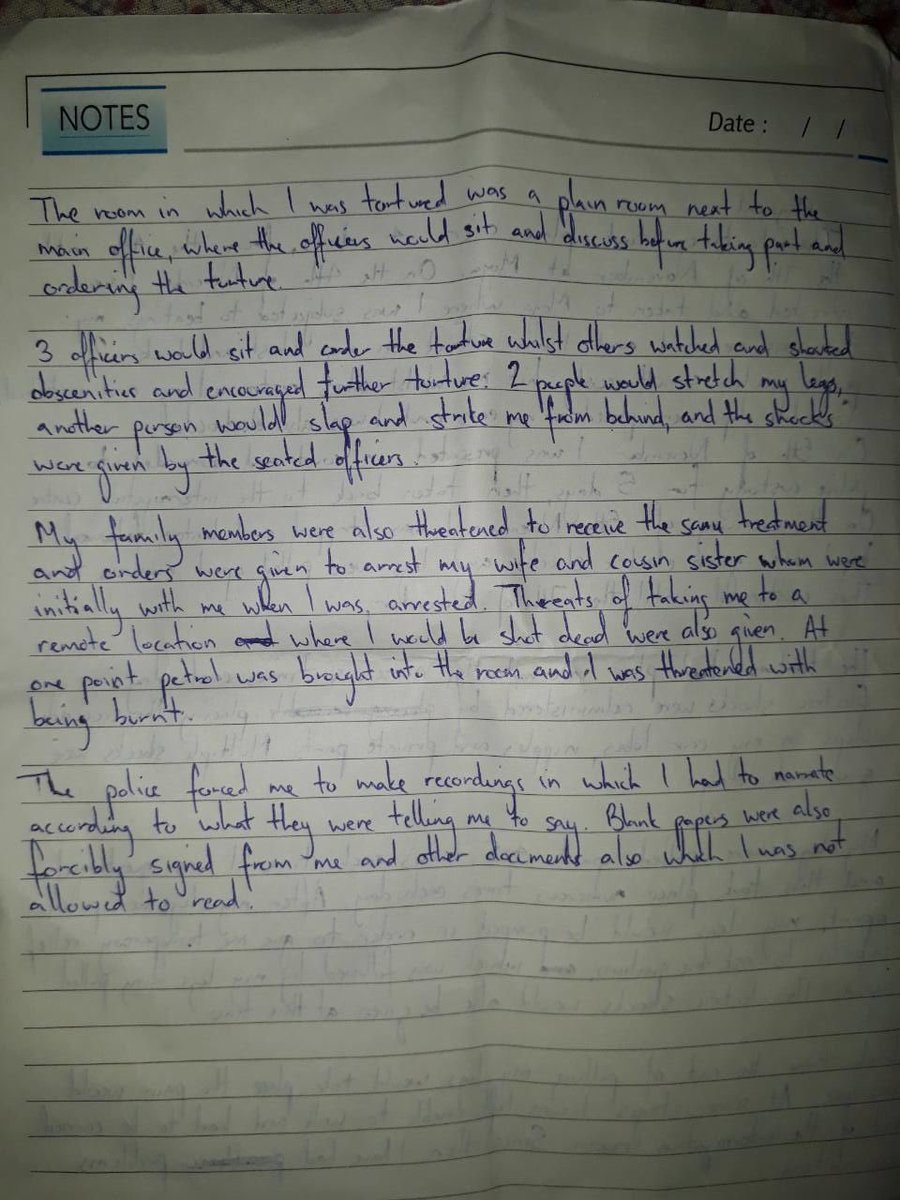 NOTES
Date : / /
The room in which I was tortured was a plain room next to the
main office, where the officers would sit and discuss before taking part and
ordering the torture.
3 officers would sit and order the torture whilst others watched and shouted
obscenities and encouraged further torture. 2 people would stretch my legs,
another person would slap and strike me from behind, and the shocks
were given by the seated officers.
My family members were also threatened to receive the same treatment
and orders were given to arrest my wife and cousin sister whom were
initially with me when I was arrested. Threats of taking me to a
remote location where I would be shot dead were also given. At
one point petrol was brought into the room and I was threatened with
being burnt.
The police forced me to make recordings in which I had to narrate
according to what they were telling me to say. Blank papers were also
forcibly signed from me and other documents also which I was not
allowed to read.